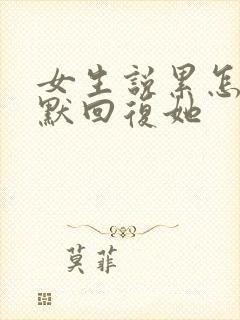 女生說累怎
默回復她
莫菲